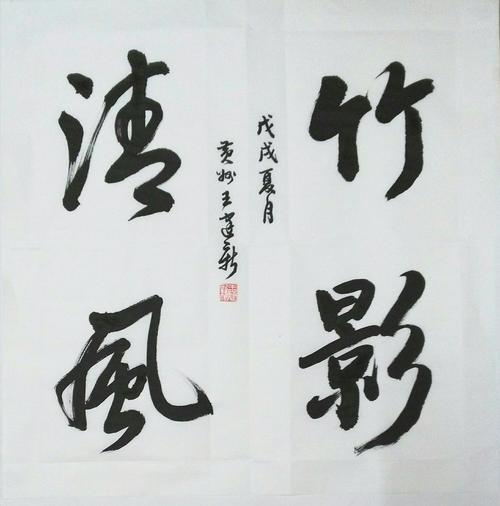 竹影
清風
戊戌夏月
黄州王建新